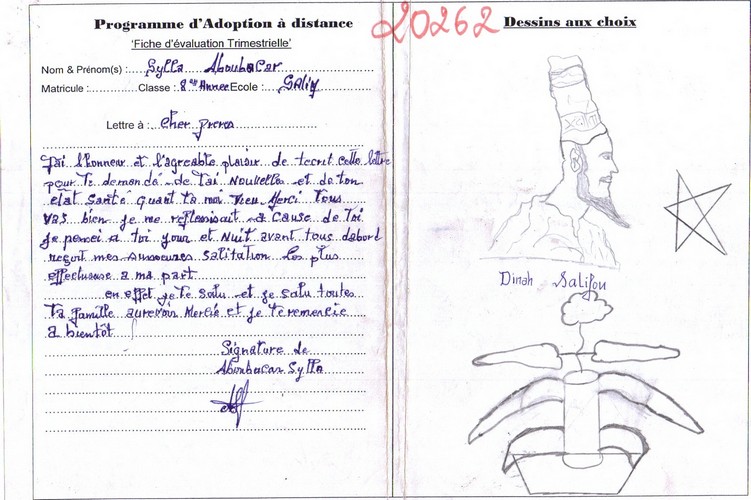 Programme d'Adoption à distance
'Fiche d'évaluation Trimestrielle'
Nom & Prénom(s) : Sylla Aboubacar
Matricule : Classe : 8ème Année Ecole : SAliF
Lettre à : Cher preres
J'ai l'honneur et l'agreable plaisir de tecrit cette lettre
pour Te demandé de Tai Nouvelles et de ton
etat Santé quant ta moi Dieu Merci Tous
vas bien je me reflessicait a Cause de Toi
Je pencei a toi jour et Nuit avant tous dabord
reçoit mes Salitation les plus
effectueuse a ma part
en effet je te Salu et je Salu toutes
Ta famille aurevoir Mercie et je teremercie
a bientôt
Signature de
Aboubacar Sylla
20262
Dessins aux choix
Dinah Salifou